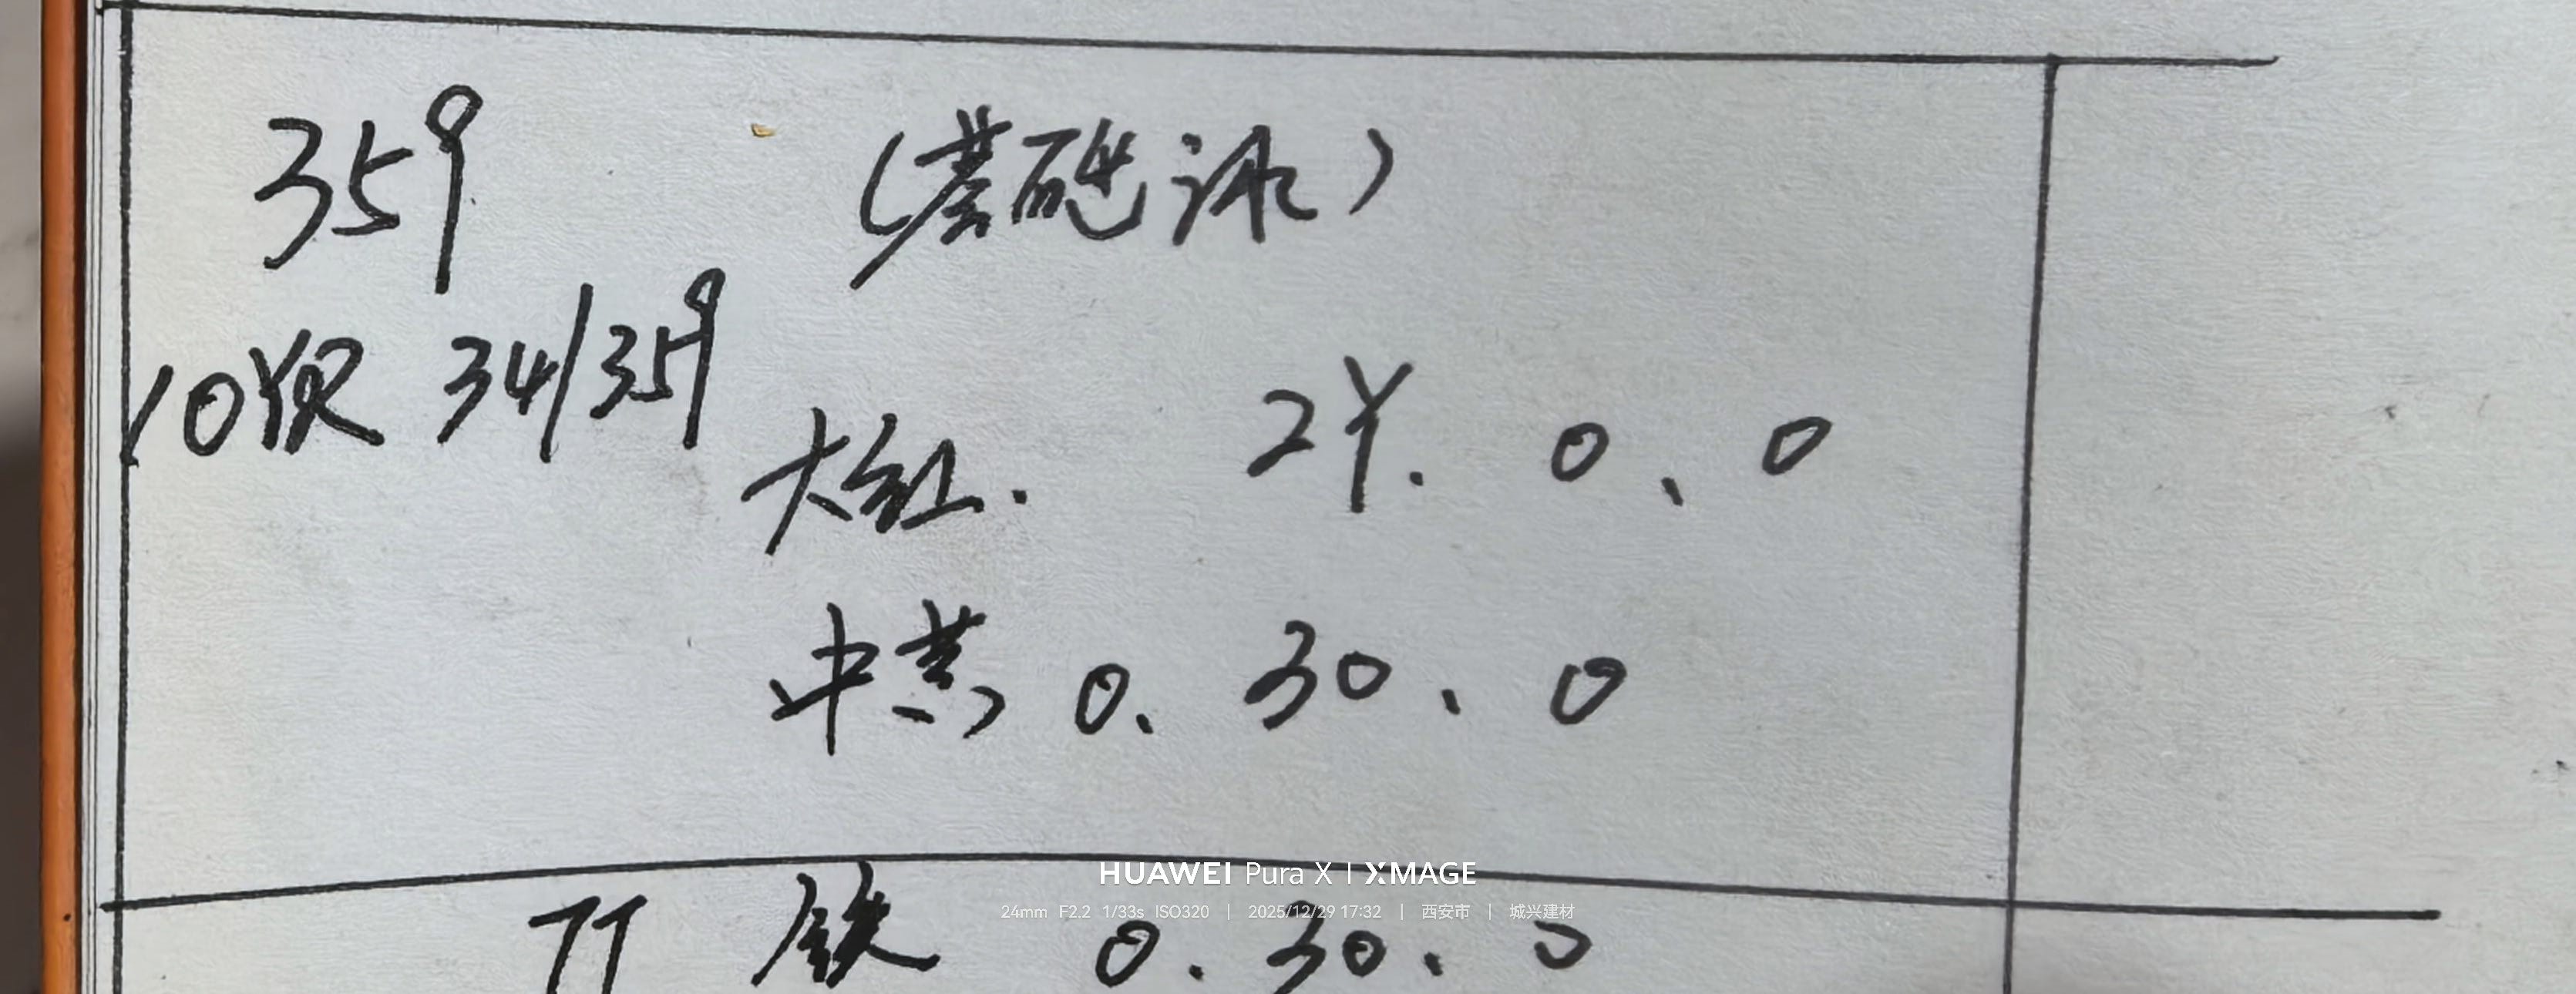 359 (基础漆)
10级 34/359
大红. 2Y. 0、0
中黄 0、30、0
HUAWEI Pura X | XMAGE
24mm F2.2 1/33s ISO320 | 2025/12/29 17:32 | 西安市 | 城兴建材
77 铁 0.30.0